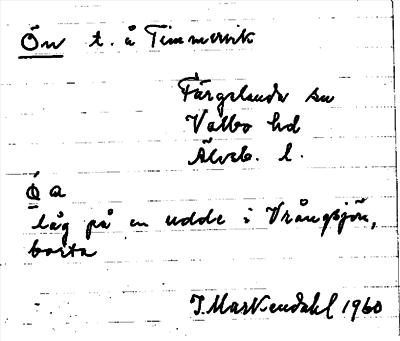 Ön t. å Timmervik
Färgelanda sn
Valbo hd
Älvsb. l.
Ö a
låg på en udde i Vrångsjön,
borta
J. Markendahl 1960